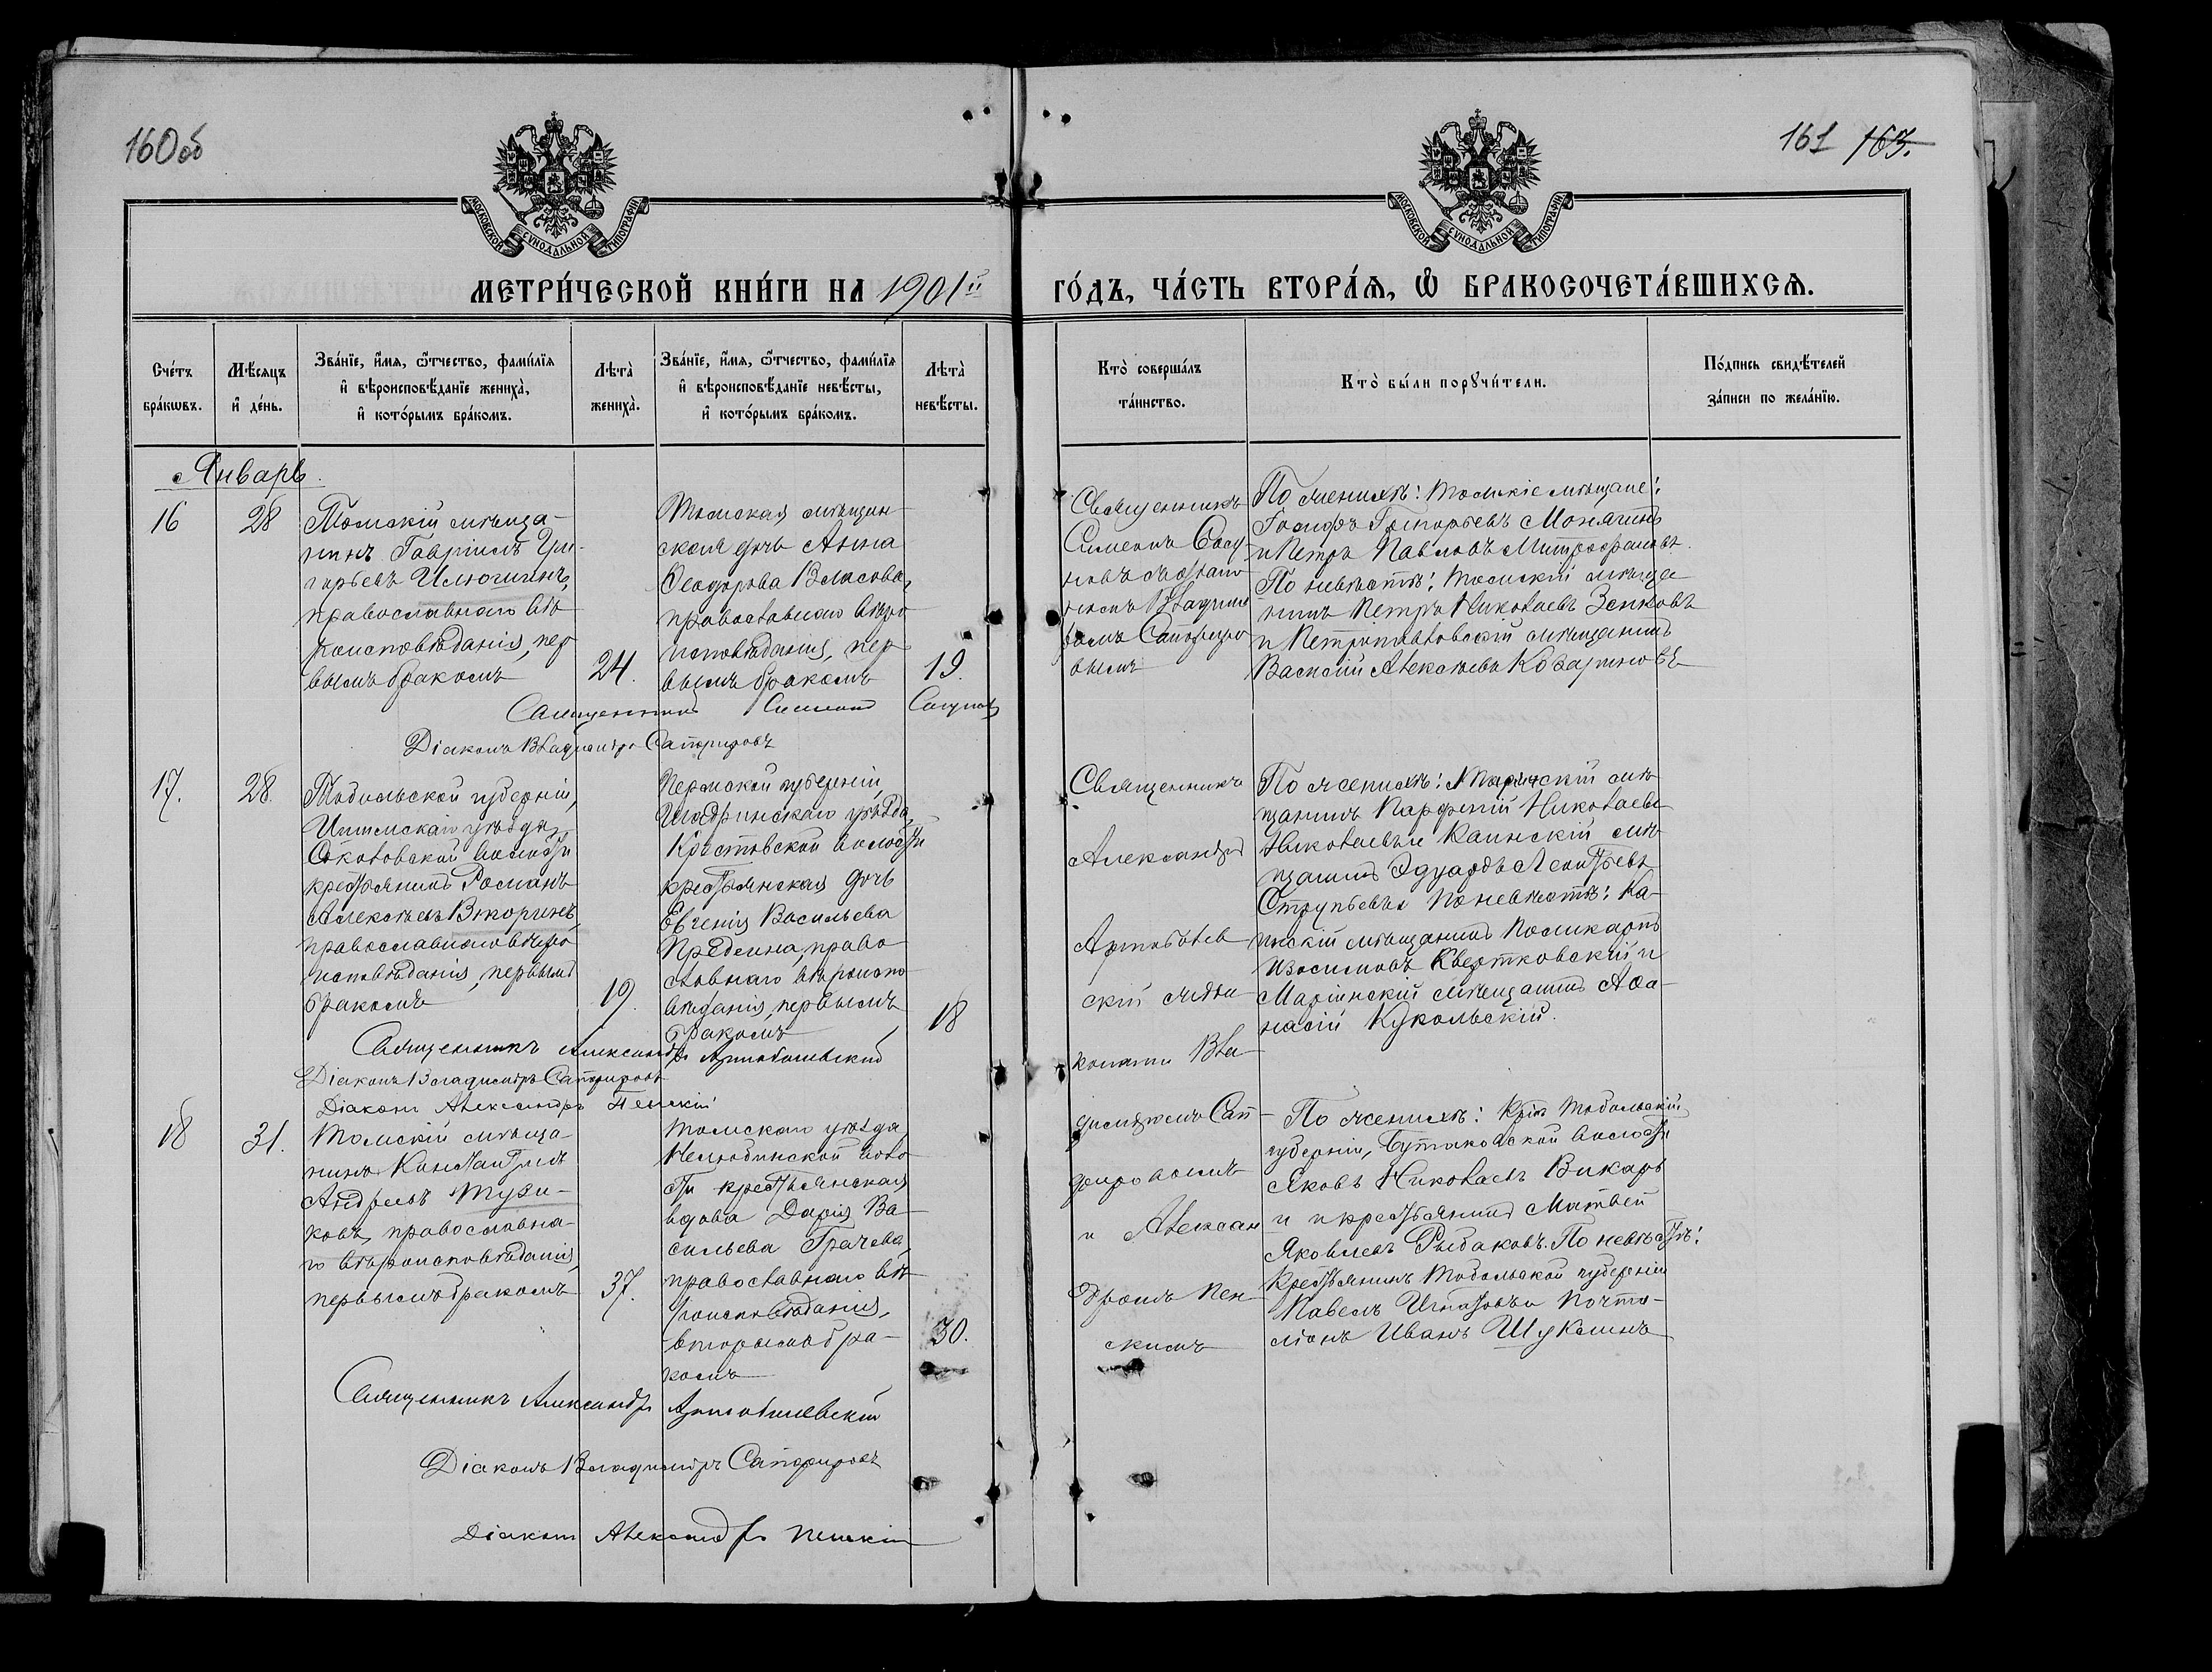 160 об
161 163.
МОСКОВСКОЙ СѴНОДАЛЬНОЙ ТИПОГРАФІИ
МОСКОВСКОЙ СѴНОДАЛЬНОЙ ТИПОГРАФІИ
МЕТРИ́ЧЕСКОЙ КНИ́ГИ НА 1901й ГО́ДЪ, ЧА́СТЬ ВТОРА́Ѧ, Ѽ БРАКОСОЧЕТА́ВШИХСѦ.
Сче́тъ бра́кѡвъ.
Мѣ́сяцъ и҆ де́нь.
Зва́нїе, и҆́мя, ѻ҆́тчество, фами́лїя
и҆ вѣроисповѣ́данїе жениха̀,
и҆ кото́рымъ бра́комъ.
Лѣта̀ жениха̀.
Зва́нїе, и҆́мя, ѻ҆́тчество, фами́лїя
и҆ вѣроисповѣ́данїе невѣ́сты,
и҆ кото́рымъ бра́комъ.
Лѣта̀ невѣ́сты.
Кто̀ соверша́лъ
та́инство.
Кто̀ бы́ли порꙋчи́тели.
По́дпись свидѣ́телей
за́писи по жела́нїю.
Январь.
16
28
Томскій мѣща-
нинъ Гавріилъ Гри-
горьевъ Илюгинъ,
православнаго вѣ-
роисповѣданія, пер
вымъ бракомъ
24.
Томская мѣщан-
ская дочь Анна
Ѳеодорова Власова,
православнаго вѣро
исповѣданія, пер
вымъ бракомъ
19.
Священникъ
Симеонъ Сосу-
новъ съ діако
номъ Владимі
ромъ Сапфиро
вымъ
По женихѣ: Томскіе мѣщане:
Іосифъ Григорьевъ
и Петръ Павловъ Митрофановъ.
По невѣстѣ: Томскій мѣща
нинъ Петръ Николаевъ Зенковъ
и Петропавловскій мѣщанинъ
Василій Алексѣевъ
Священникъ Симеонъ Сосуновъ
Діаконъ Владиміръ Сапфировъ
17.
28.
Тобольской губерніи,
Ишимскаго уѣзда,
волости
крестьянинъ Романъ
Алексѣевъ Вторинъ,
православнаго вѣро
исповѣданія, первымъ
бракомъ
19.
Пермской губерніи,
Шадринскаго уѣзда,
Крестовской волости
крестьянская дочь
Евгенія Васильева
право
славнаго вѣроиспо
вѣданія, первымъ
бракомъ
18
Священникъ
Александръ
Артоболев
скій съ діа
конами Вла
диміромъ Сап
фировымъ
и Алексан
дромъ Пен
скимъ
По женихѣ: Маріинскій мѣ
щанинъ Парфеній Николаевъ
Николаевъ и Каинскій мѣ
щанинъ Эдуардъ Леонтьевъ
По невѣстѣ: Ка-
инскій мѣщанинъ Поликарпъ
Изосимовъ Квертковскій и
Маріинскій мѣщанинъ Аѳа-
насій Кукольскій.
Священникъ Александръ Артоболевскій
Діаконъ Владиміръ Сапфировъ
Діаконъ Александръ Пенскій
18
31.
Томскій мѣща-
нинъ Константинъ
Андреевъ Тузи-
ковъ, православна-
го вѣроисповѣданія,
первымъ бракомъ
37.
Томскаго уѣзда
Нелюбинской воло
сти крестьянская
вдова Дарія Ва
сильева Грачева,
православнаго вѣ
роисповѣданія,
вторымъ бра-
комъ
30.
По женихѣ: Кр. Тобольской
губерніи, Бутаковской волости
Яковъ Николаевъ Викаръ
и крестьянинъ Матвей
Яковлевъ Рыбаковъ. По невѣстѣ:
Крестьянинъ Тобольской губерніи
Павелъ Игнатовъ и Почта-
ліонъ Иванъ Шуклинъ
Священникъ Александръ Артоболевскій
Діаконъ Владиміръ Сапфировъ
Діаконъ Александръ Пенскій